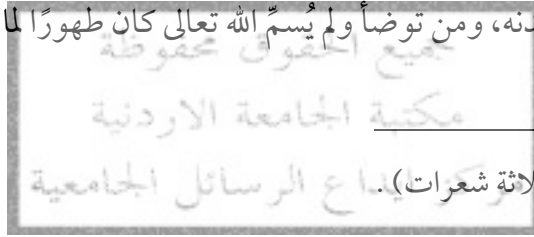 دنه، ومن توضأ ولم يُسمِّ الله تعالى كان طهورًا لما
جميع الحقوق محفوظة
مكتبة الجامعة الاردنية
لاثة شعرات) .
مركز ايداع الرسائل الجامعية